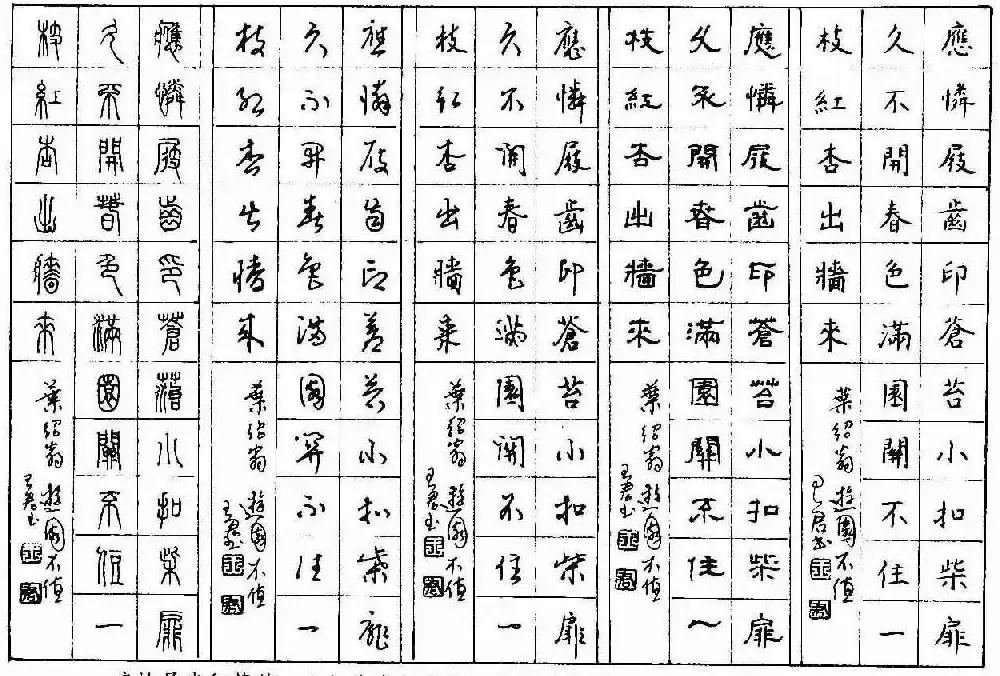 應憐屐齒印蒼苔小扣柴扉
久不開春色滿園關不住一
枝紅杏出牆來 葉紹翁 遊園不值
應憐屐齒印蒼苔小扣柴扉
久不開春色滿園關不住一
枝紅杏出牆來 葉紹翁 遊園不值
應憐屐齒印蒼苔小扣柴扉
久不開春色滿園關不住一
枝紅杏出牆來 葉紹翁 遊園不值
應憐屐齒印蒼苔小扣柴扉
久不開春色滿園關不住一
枝紅杏出牆來 葉紹翁 遊園不值
應憐屐齒印蒼苔小扣柴扉
久不開春色滿園關不住一
枝紅杏出牆來 葉紹翁 遊園不值